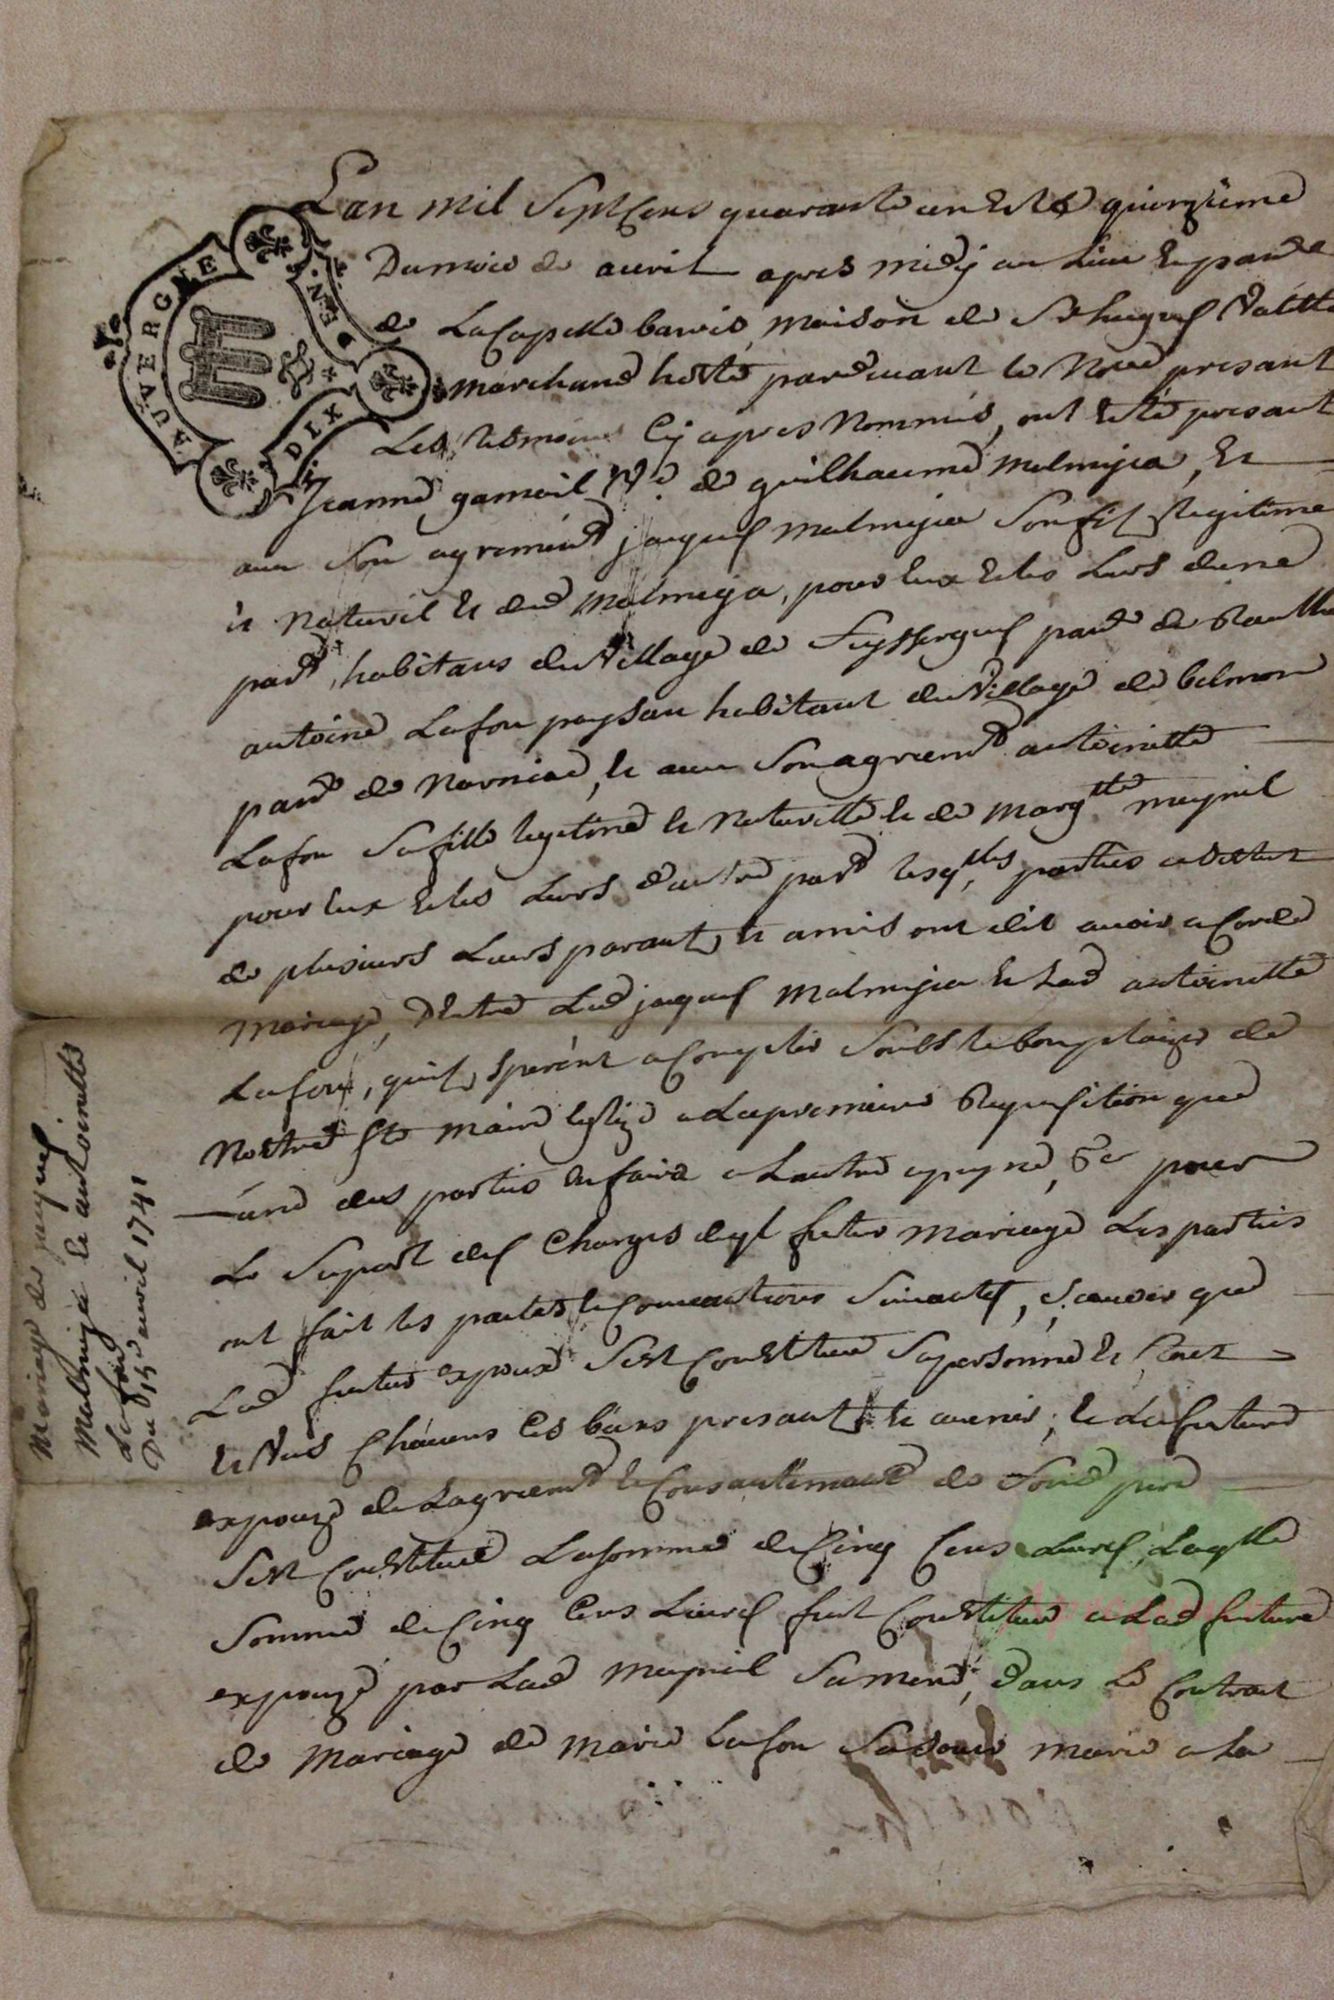 Lan mil Sept Cens quarante un et le quinzieme
Du mois de avril apres midy au Lieu et par
de Lacapelle barrés, maison de Sr hugues
marchand hoste pardevant le Nore presant
Les tesmoins Cy apres Nommés, ont esté presant
Jeanne gamoil Ve de guilhaume malmejea, et
avec Son agrement jaques malmejea Son fils Legitime
et Naturel et dud malmeja, pour eux et les Leurs dune
part, habitans du Village de par de
antoine Lafon paysan habitant du Village de belmon
par de et avec Son agrement antoinette
Lafon Sa fille legitime et Naturelle et de margtte meynil
pour eux et les Leurs dautre part lesqlles parties
de plusieurs Leurs parants et amis ont dit avoir acordé
mariage, Dentre Led jaques malmejea et Lad antoinette
Lafon, quils sperent acomplir Soubs le bon plaizir de
Nostre Ste maire esglize a La premiere Requisition que
une des parties en faira a Lautre a peyne, &c pour
Le Suport des Charges dud futur mariage Les parties
ont fait les pactes et Conventions Suivantes, Scavoir que
Led futur expoux Sest Constitué Sa personne et
et Ses biens presants et avenir; et La future
expouze de Lagrement et Consantement de Sond pere
Sest Constituée La somme de Cinq Cens Livres, Laqlle
Somme de Cinq Cens Livres fut Constituée a Lad future
expouze par Lad meynil Sa mere, dans Le Contrat
de mariage de marie Lafon Sa soeur marie a La
AUVERGNE
GEN
DIX
Mariage de jaques
Malmejea et antoinette
Lafon
Du 15e avril 1741